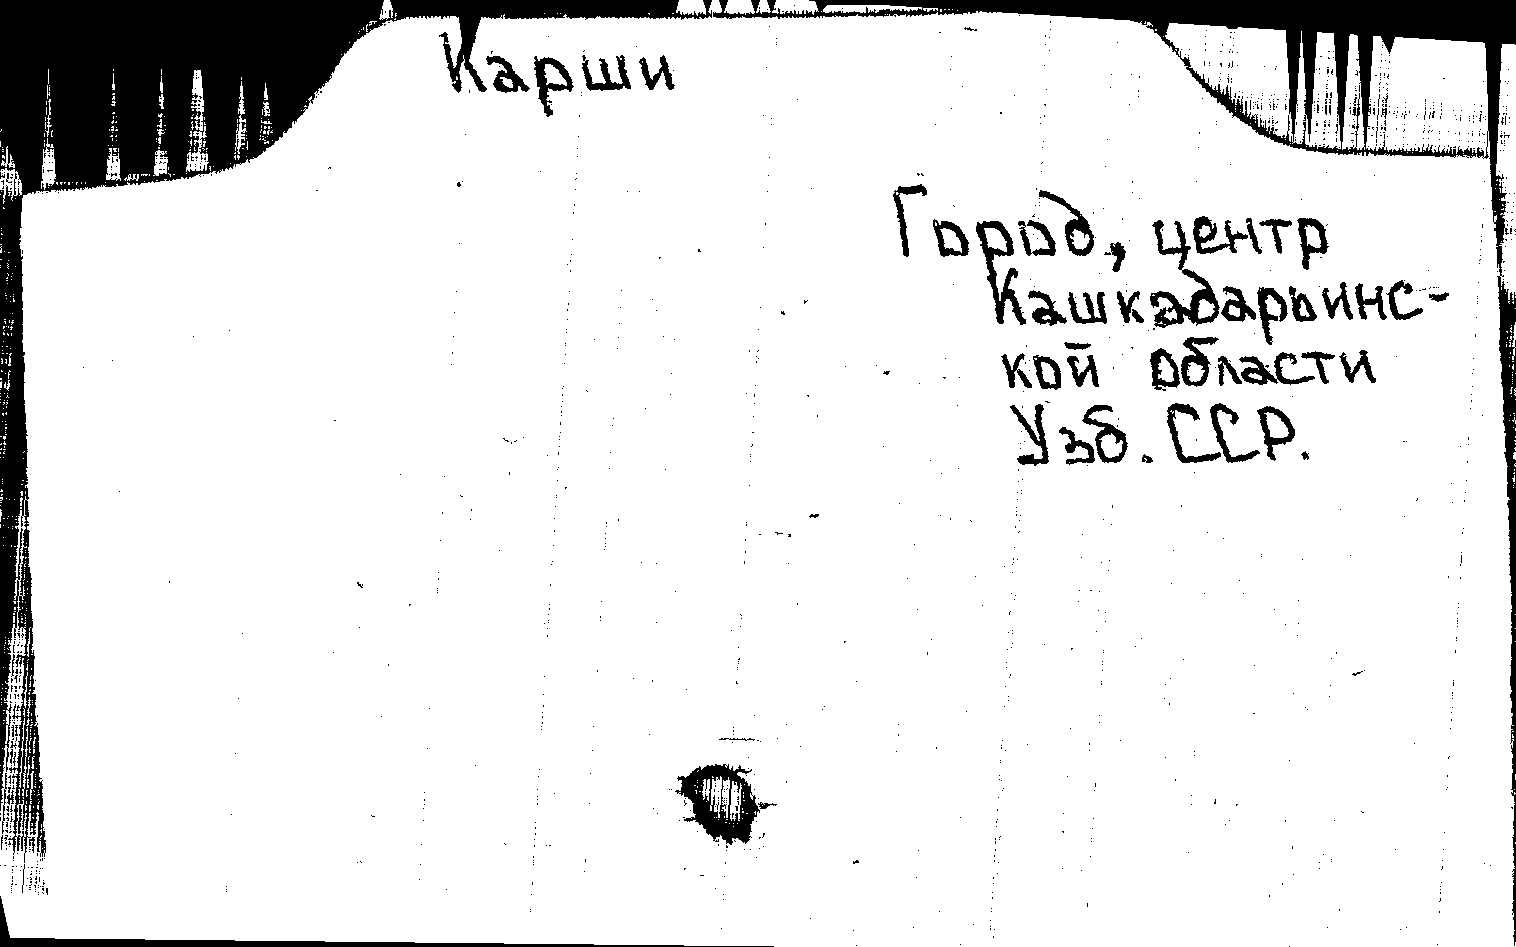 Карши
Город, центр
Кашкадарьинс-
кой области
Узб. ССР.